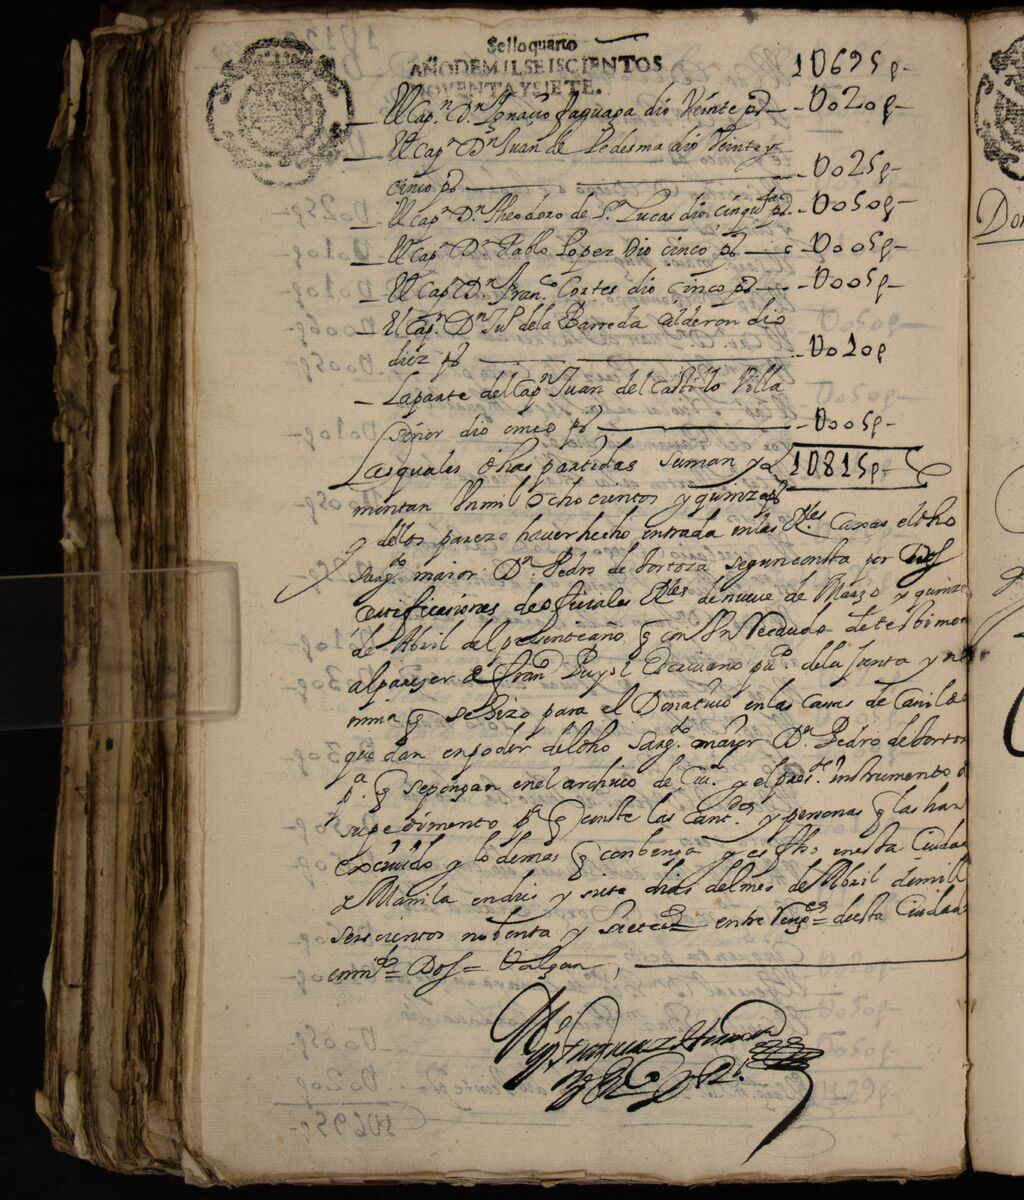 Sello quarto
AÑO DE MIL SEISCIENTOS
NOVENTA Y SIETE.
1U695p
El Capn. Dn. Ignacio Jaguapa dio Veinte ps — U020p
El Capn Dn Juan de Ledesma dio Veinte y
cinco ps — U025p
El Capn Dn Theodoro de Sn Lucas dio cinquta ps. U050p
El Capn Dn Pablo Lopez dio cinco ps — U005p
El Capn Dn. Franco. Cortes dio cinco ps — U005p
El Capn. Dn Jul de la Barreda Calderon dio
diez ps — U010p
La parte del Capn Juan del Castillo Villa
señor dio cinco ps — U005p
Las quales dhas partidas suman y 1U815p
mentan Un mil ochocientos y quinze ps
q dellos pareze haver hecho entrada en las Rles. Caxas el dho
sargto. maior Dn. Pedro de tortoza segun consta por Dos
certificasiones de ofisiales Rles de nueve de Marzo y quinze
de Abril del presente año q con Un recaudo de testimon
al pareser de Frano Puyol Escrivano puco. de la Junta y no
mina q se hizo para el Donativo en las casas de Cavildo
que dan en poder del dho Sargto. mayor Dn Pedro de tortoza
pa. q se pongan en el archivo de Ciud. y el preste. instrumento
su pedimento pa q conste las cantdes y personas q las han
exivido y lo demas q conbenga y es fho en esta Ciudad
de Manila en dies y siete dias del mes de Abril de mill
seiscientos nobenta y siete as = entre Rengs = desta Ciudad
enmdo = Dos = Valgan,